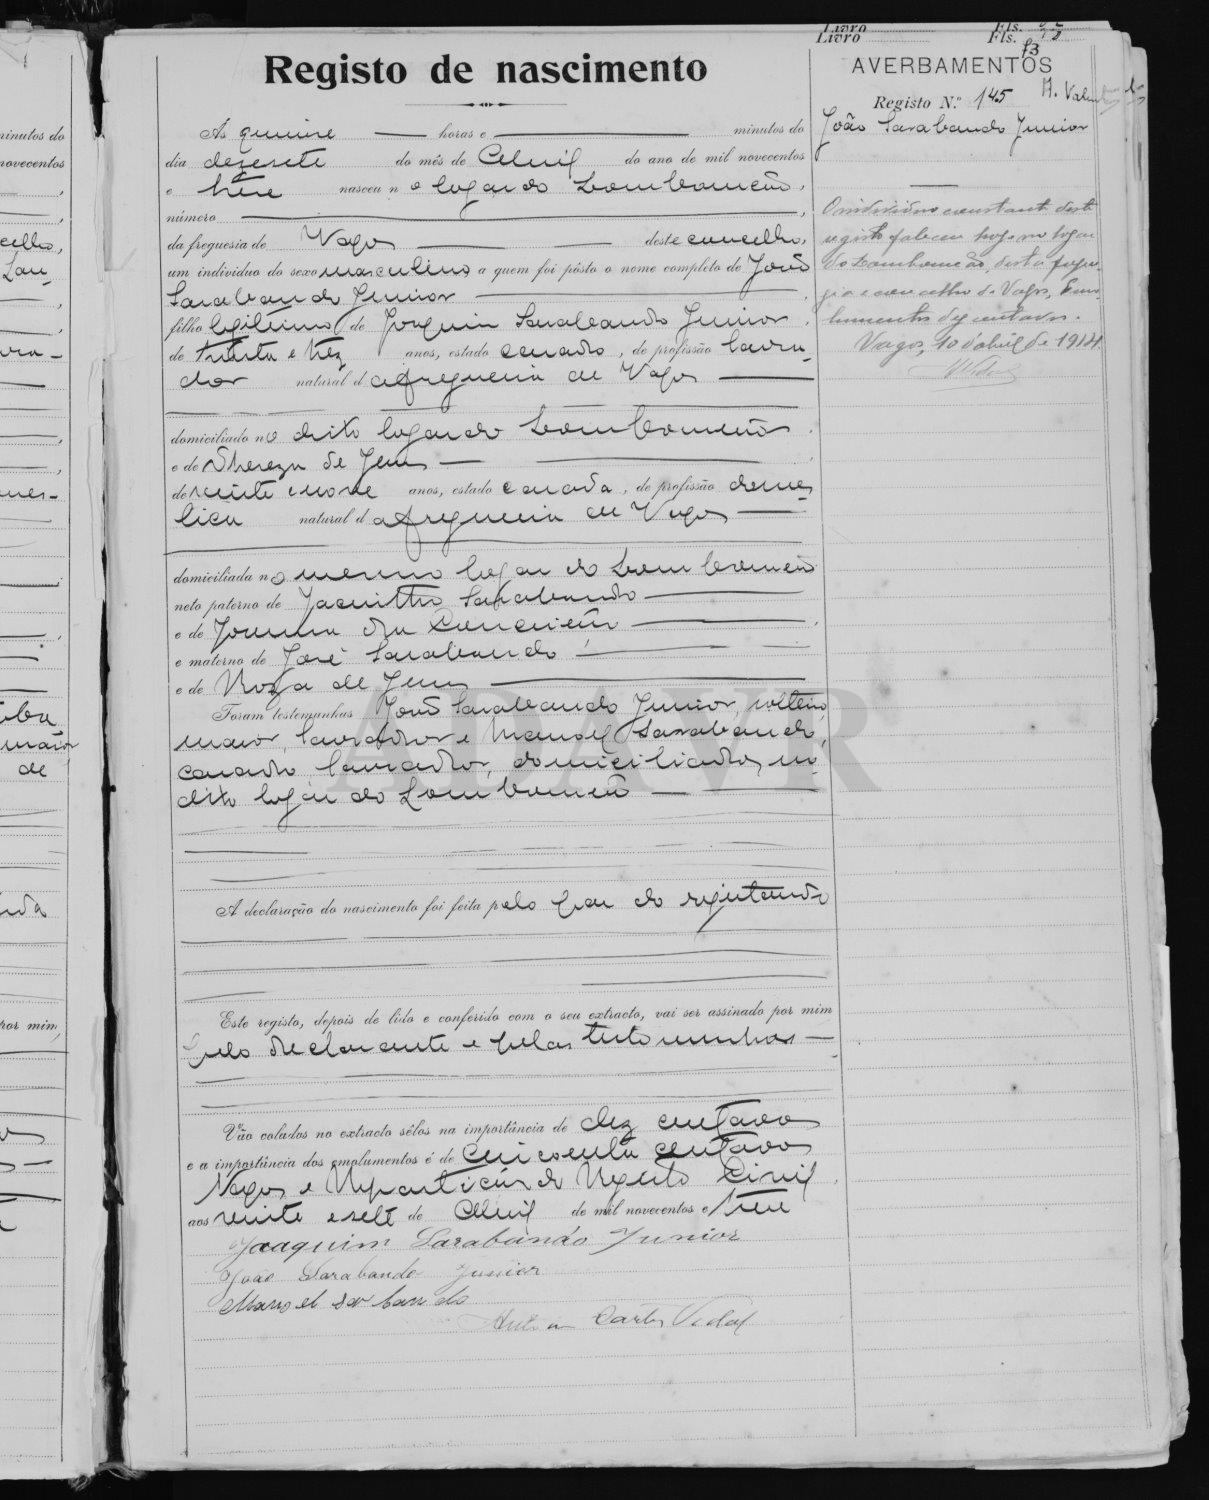 Livro Fls.
Livro Fls.
73
Registo de nascimento
AVERBAMENTOS
Registo N.º 145
João Sarabando Junior
Ás quinze horas e minutos do
dia dezesete do mês de Abril do ano de mil novecentos
e treze nasceu no logar do Lombomeão,
número ,
da freguesia de Vagos deste concelho,
um individuo do sexo masculino a quem foi pôsto o nome completo de João
Sarabando Junior
filho legitimo de Joaquim Sarabando Junior
de trinta e trez anos, estado casado, de profissão lavra-
dor natural da freguesia de Vagos
domiciliado no dito logar do Lombomeão
e de Thereza de Jesus
de vinte e nove anos, estado casada, de profissão domes-
tica natural da freguesia de Vagos
domiciliada no mesmo logar do Lombomeão
neto paterno de Jacintho Sarabando
e de Joanna da Conceição
e materno de José Sarabando
e de Roza de Jesus
Foram testemunhas João Sarabando Junior, solteiro,
maior, lavrador e Manoel Sarabando,
casado, lavrador, domiciliados no
dito logar do Lombomeão
A declaração do nascimento foi feita pelo pai do registando
Este registo, depois de lido e conferido com o seu extracto, vai ser assinado por mim
pelo declarante e pelas testemunhas
Vão colados no extracto sêlos na importância de dez centavos
e a importância dos emolumentos é de cincoenta centavos
Vagos e Repartição do Registo Civil
aos vinte e sete de Abril de mil novecentos e treze
Joaquim Sarabando Junior
João Sarabando Junior
Manoel Sarabando
Carlos Vidal
O individuo constante deste
registo faleceu hoje no logar
do Lombomeão, desta fregue-
zia e concelho de Vagos, Emo-
lumentos dez centavos.
Vagos, 10 d'abril de 1914
ADAVR